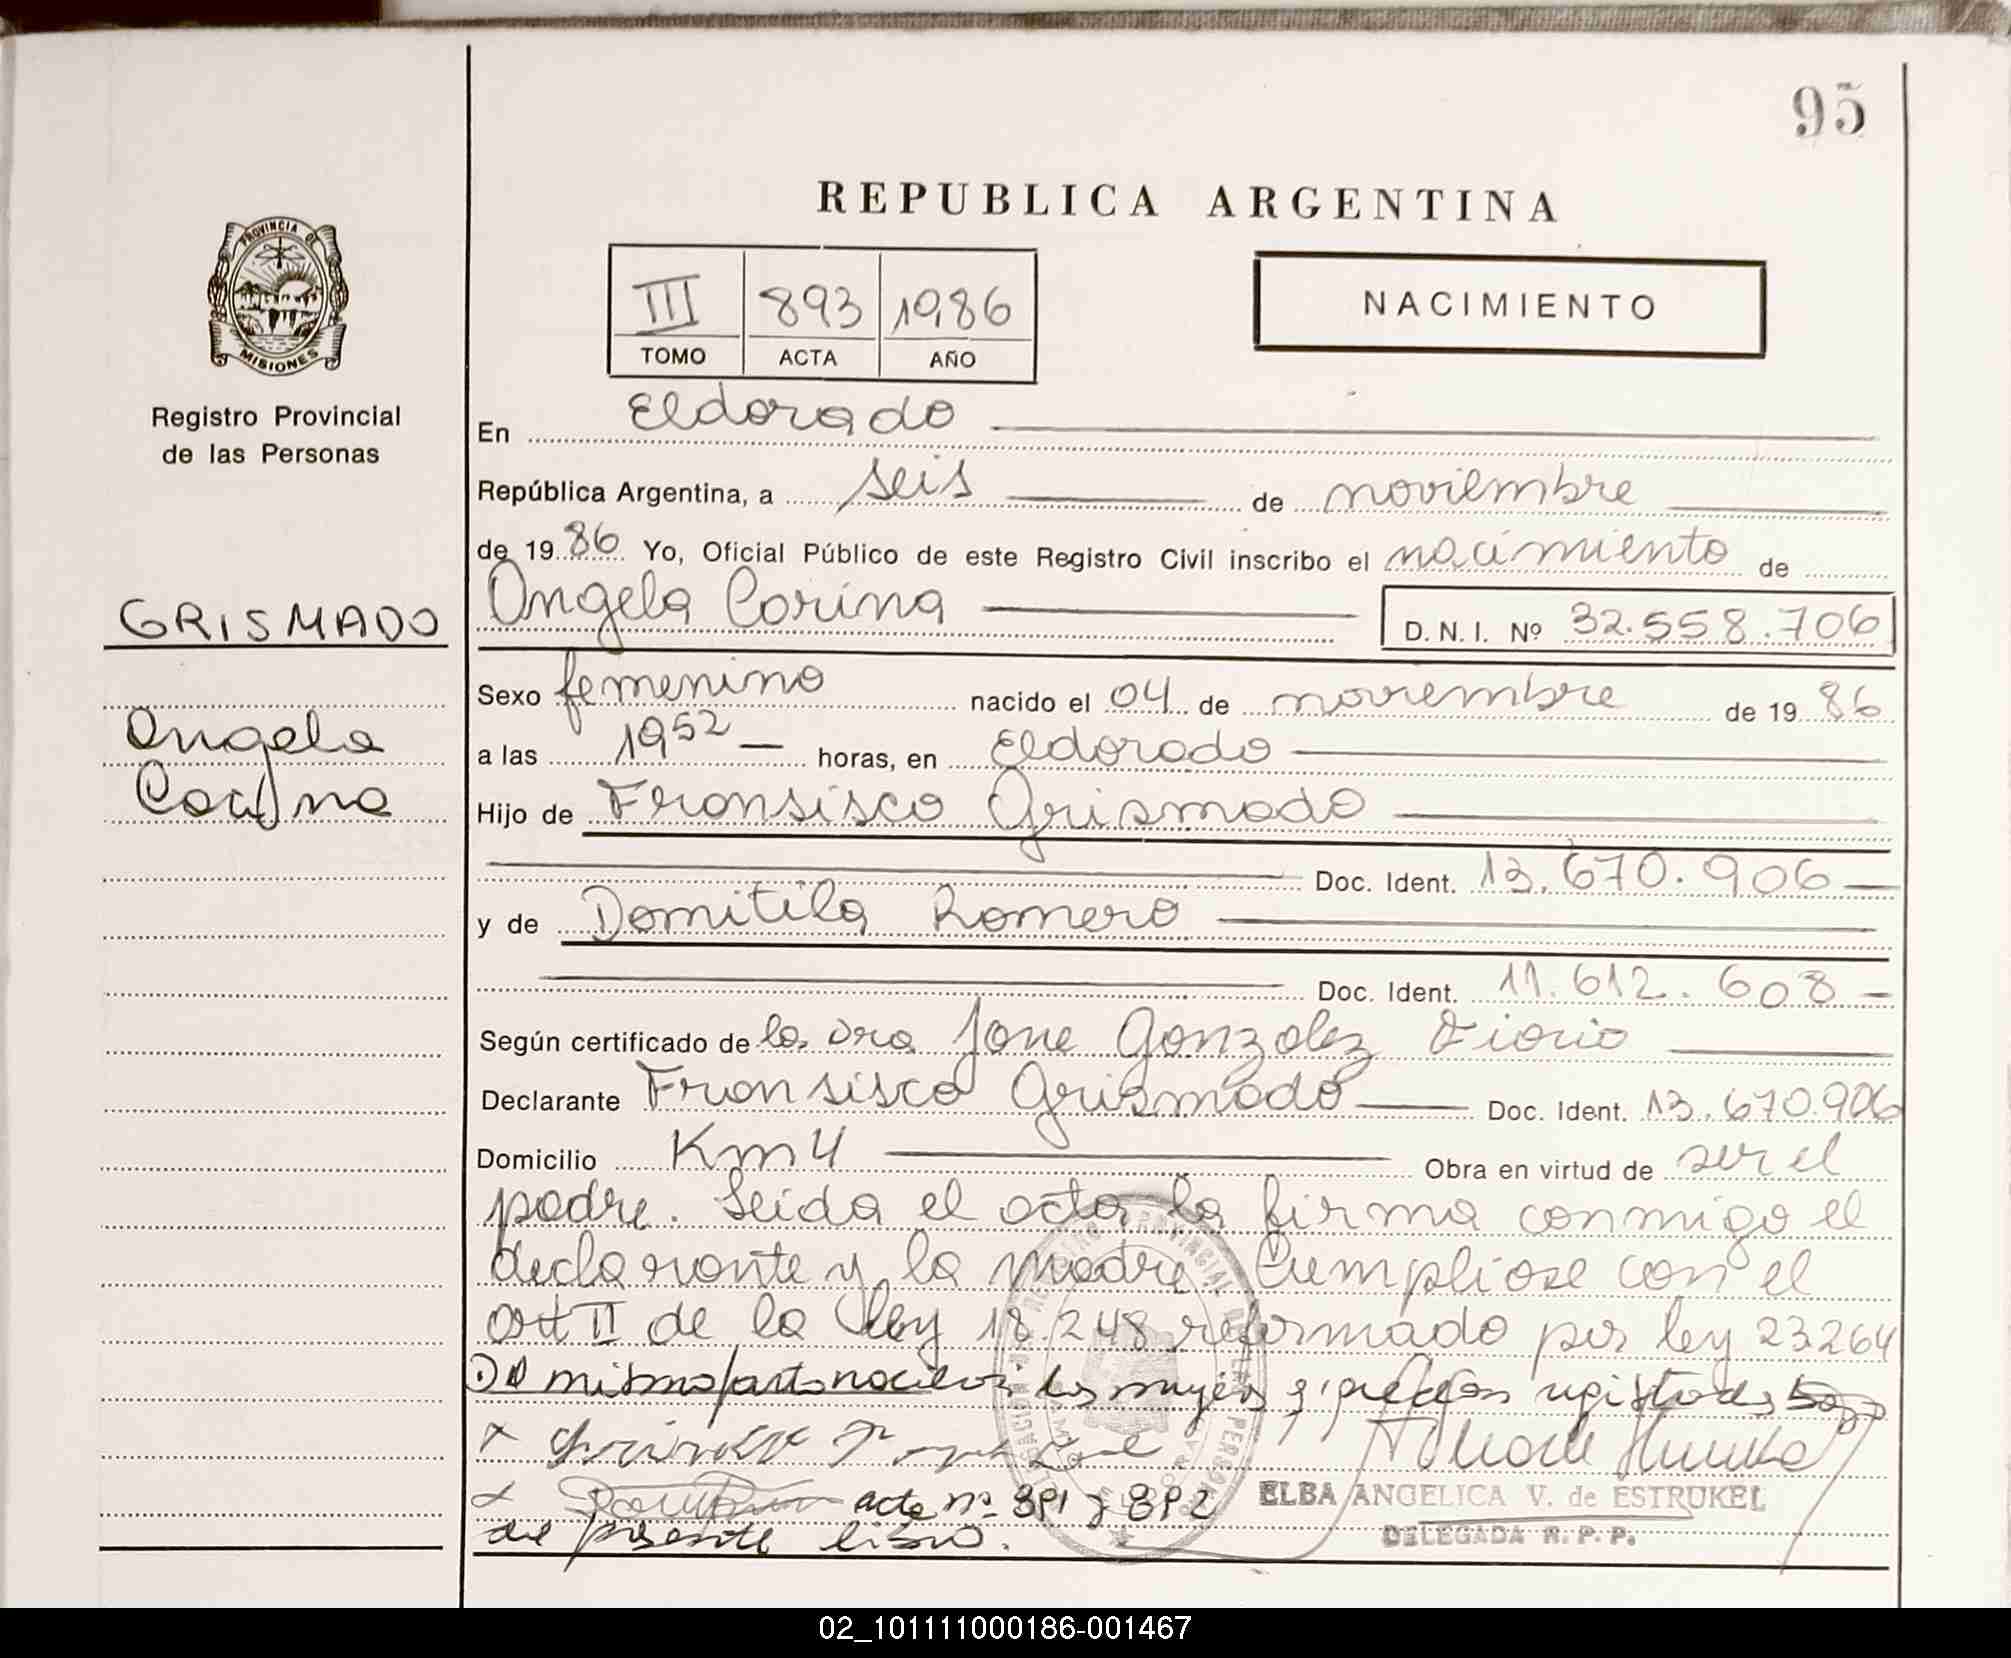 95
REPUBLICA ARGENTINA
PROVINCIA DE
MISIONES
III 893 1986
TOMO ACTA AÑO
NACIMIENTO
Registro Provincial
de las Personas
En Eldorado
República Argentina, a seis de noviembre
de 1986 Yo, Oficial Público de este Registro Civil inscribo el nacimiento de
GRISMADO
Angela Corina D. N. I. Nº 32.558.706
Sexo femenino nacido el 04 de noviembre de 1986
Angela
Corina
a las 19 52 horas, en Eldorado
Hijo de Fransisco Grismado
Doc. Ident. 13.670.906
y de Domitila Romero
Doc. Ident. 11.612.608
Según certificado de la Dra Jane Gonzalez
Declarante Fransisco Grismado Doc. Ident. 13.670.906
Domicilio Km 4 Obra en virtud de ser el
padre. Leida el acta la firma conmigo el
declarante y la madre Cumpliose con el
art II de la ley 18.248 reformado por ley 23264
mismo parto nacieron
acta nº 891 y 892
del presente libro.
ELBA ANGELICA V. de ESTRUKEL
DELEGADA R. P. P.
02_101111000186-001467